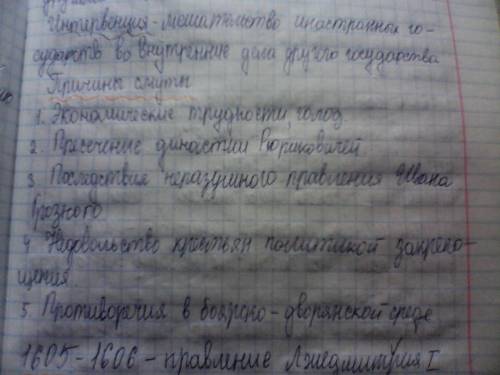 Интервенция - мешательство иностранных го-
сударств во внутренние дела другого государства
Причины смуты
1. Экономические трудности, голод.
2. Пресечение династии Рюриковичей
3. Последствия неразумного правления Ивана
Грозного
4. Недовольство крестьян политикой закрепо-
щения.
5. Противоречия в боярско-дворянской среде
1605-1606 - правление Лжедмитрия I